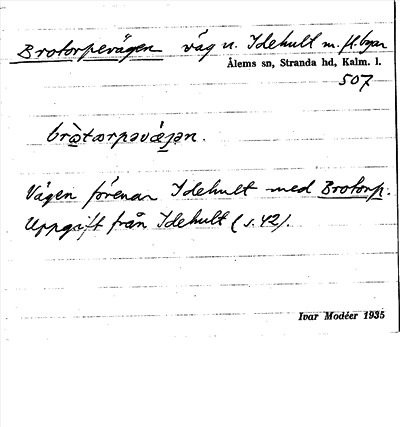 Brotorpevägen väg u. Idehult m. fl. byar
Ålems sn, Stranda hd, Kalm. l.
507
bròtærpəvæ̀jən.
Vägen förenar Idehult med Brotorp.
Uppgift från Idehult (s. 42).
Ivar Modéer 1935